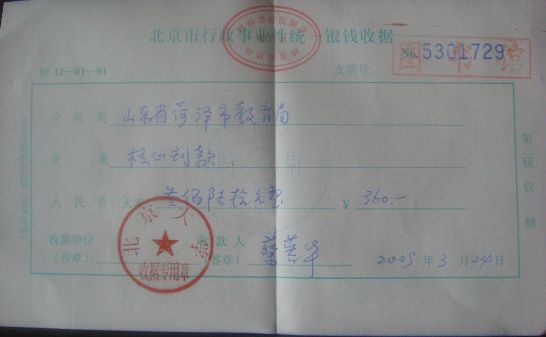 北京市行政事业性统一银钱收据
No. 5301729
图书馆
财 12-01-01
支票号:
今收到 山东省菏泽市教育局
交来 核心刊款
人民币(大写) 叁佰陆拾元整 ¥ 360.-
收款单位
(印章)
北京大学
收据专用章
收款人
(签章)
2009 年 3 月 24 日
第二联 收据